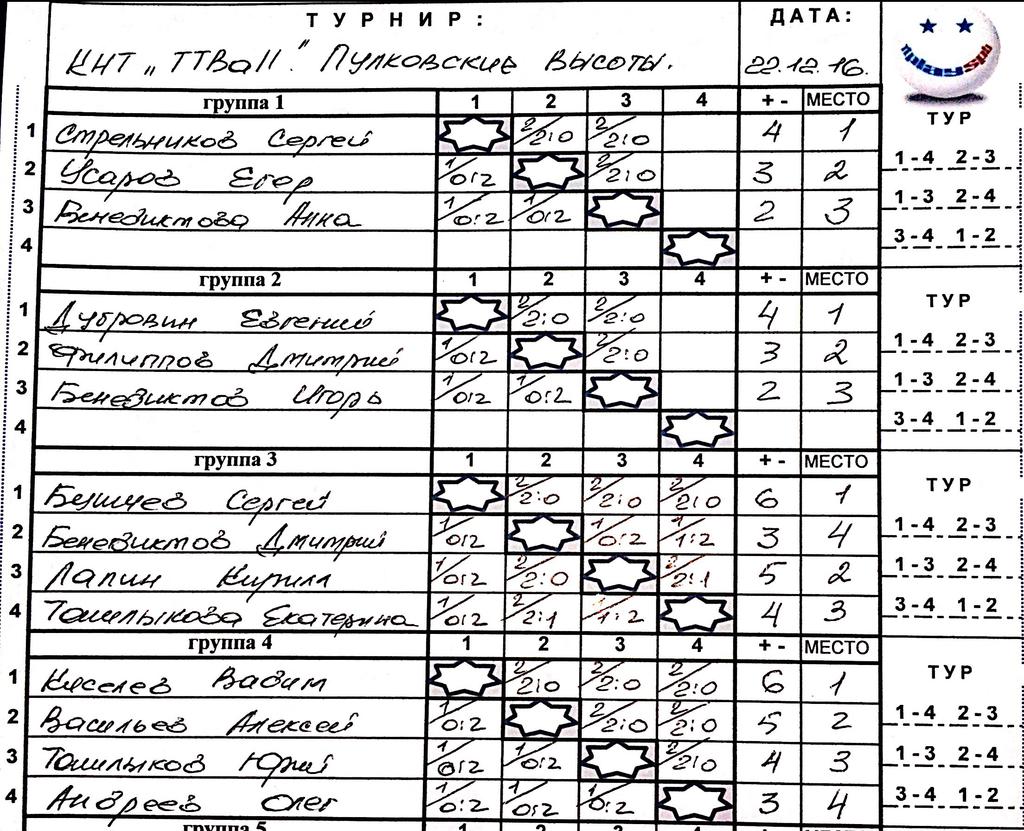 ТУРНИР: ДАТА:
КНТ „ТТВаll". Пулковские высоты. 22.12.16.
playspb
группа 1 1 2 3 4 + - МЕСТО
ТУР
1 Стрельников Сергей 2/2:0 2/2:0 4 1
1-4 2-3
2 Усаров Егор 1/0:2 2/2:0 3 2
1-3 2-4
3 Бенедиктова Анна 1/0:2 1/0:2 2 3
3-4 1-2
4
группа 2 1 2 3 4 + - МЕСТО
ТУР
1 Дубровин Евгений 2/2:0 2/2:0 4 1
1-4 2-3
2 Филиппов Дмитрий 1/0:2 2/2:0 3 2
1-3 2-4
3 Бенедиктов Игорь 1/0:2 1/0:2 2 3
3-4 1-2
4
группа 3 1 2 3 4 + - МЕСТО
ТУР
1 Сергей 2/2:0 2/2:0 2/2:0 6 1
1-4 2-3
2 Бенедиктов Дмитрий 1/0:2 1/0:2 1/1:2 3 4
1-3 2-4
3 Лапин Кирилл 1/0:2 2/2:0 2/2:1 5 2
3-4 1-2
4 Томлыкова Екатерина 1/0:2 2/2:1 1/1:2 4 3
группа 4 1 2 3 4 + - МЕСТО
ТУР
1 Киселев Вадим 2/2:0 2/2:0 2/2:0 6 1
1-4 2-3
2 Васильев Алексей 1/0:2 2/2:0 2/2:0 5 2
1-3 2-4
3 Томлыков Юрий 1/0:2 1/0:2 2/2:0 4 3
3-4 1-2
4 Андреев Олег 1/0:2 1/0:2 1/0:2 3 4
группа 5 1 2 3 4 + - МЕСТО